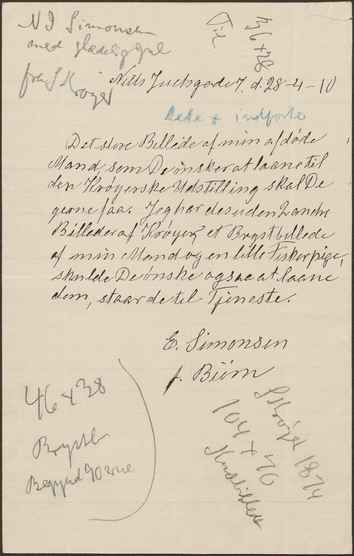 N I Simonsen
med glædeligjul
fra S Krøyer
Til
36 x 28
Niels Juelsgade 7. d. 28-4-10
Ikke indførte
Det store Billede af min afdøde
Mand, som De ønsker at laane til
den Krøyerske Udstilling skal De
gerne faa. Jeg har desuden 2 andre
Billeder af Krøyer, et Brystbillede
af min Mand og en lille Fiskerpige,
skulde De ønske ogsaa at laane
dem, staar de til Tjeneste.
E. Simonsen
f. Büm
46 x 38
Brystb
Begynd 90erne
S Krøyer 1874
104 x 76
Knæbilled